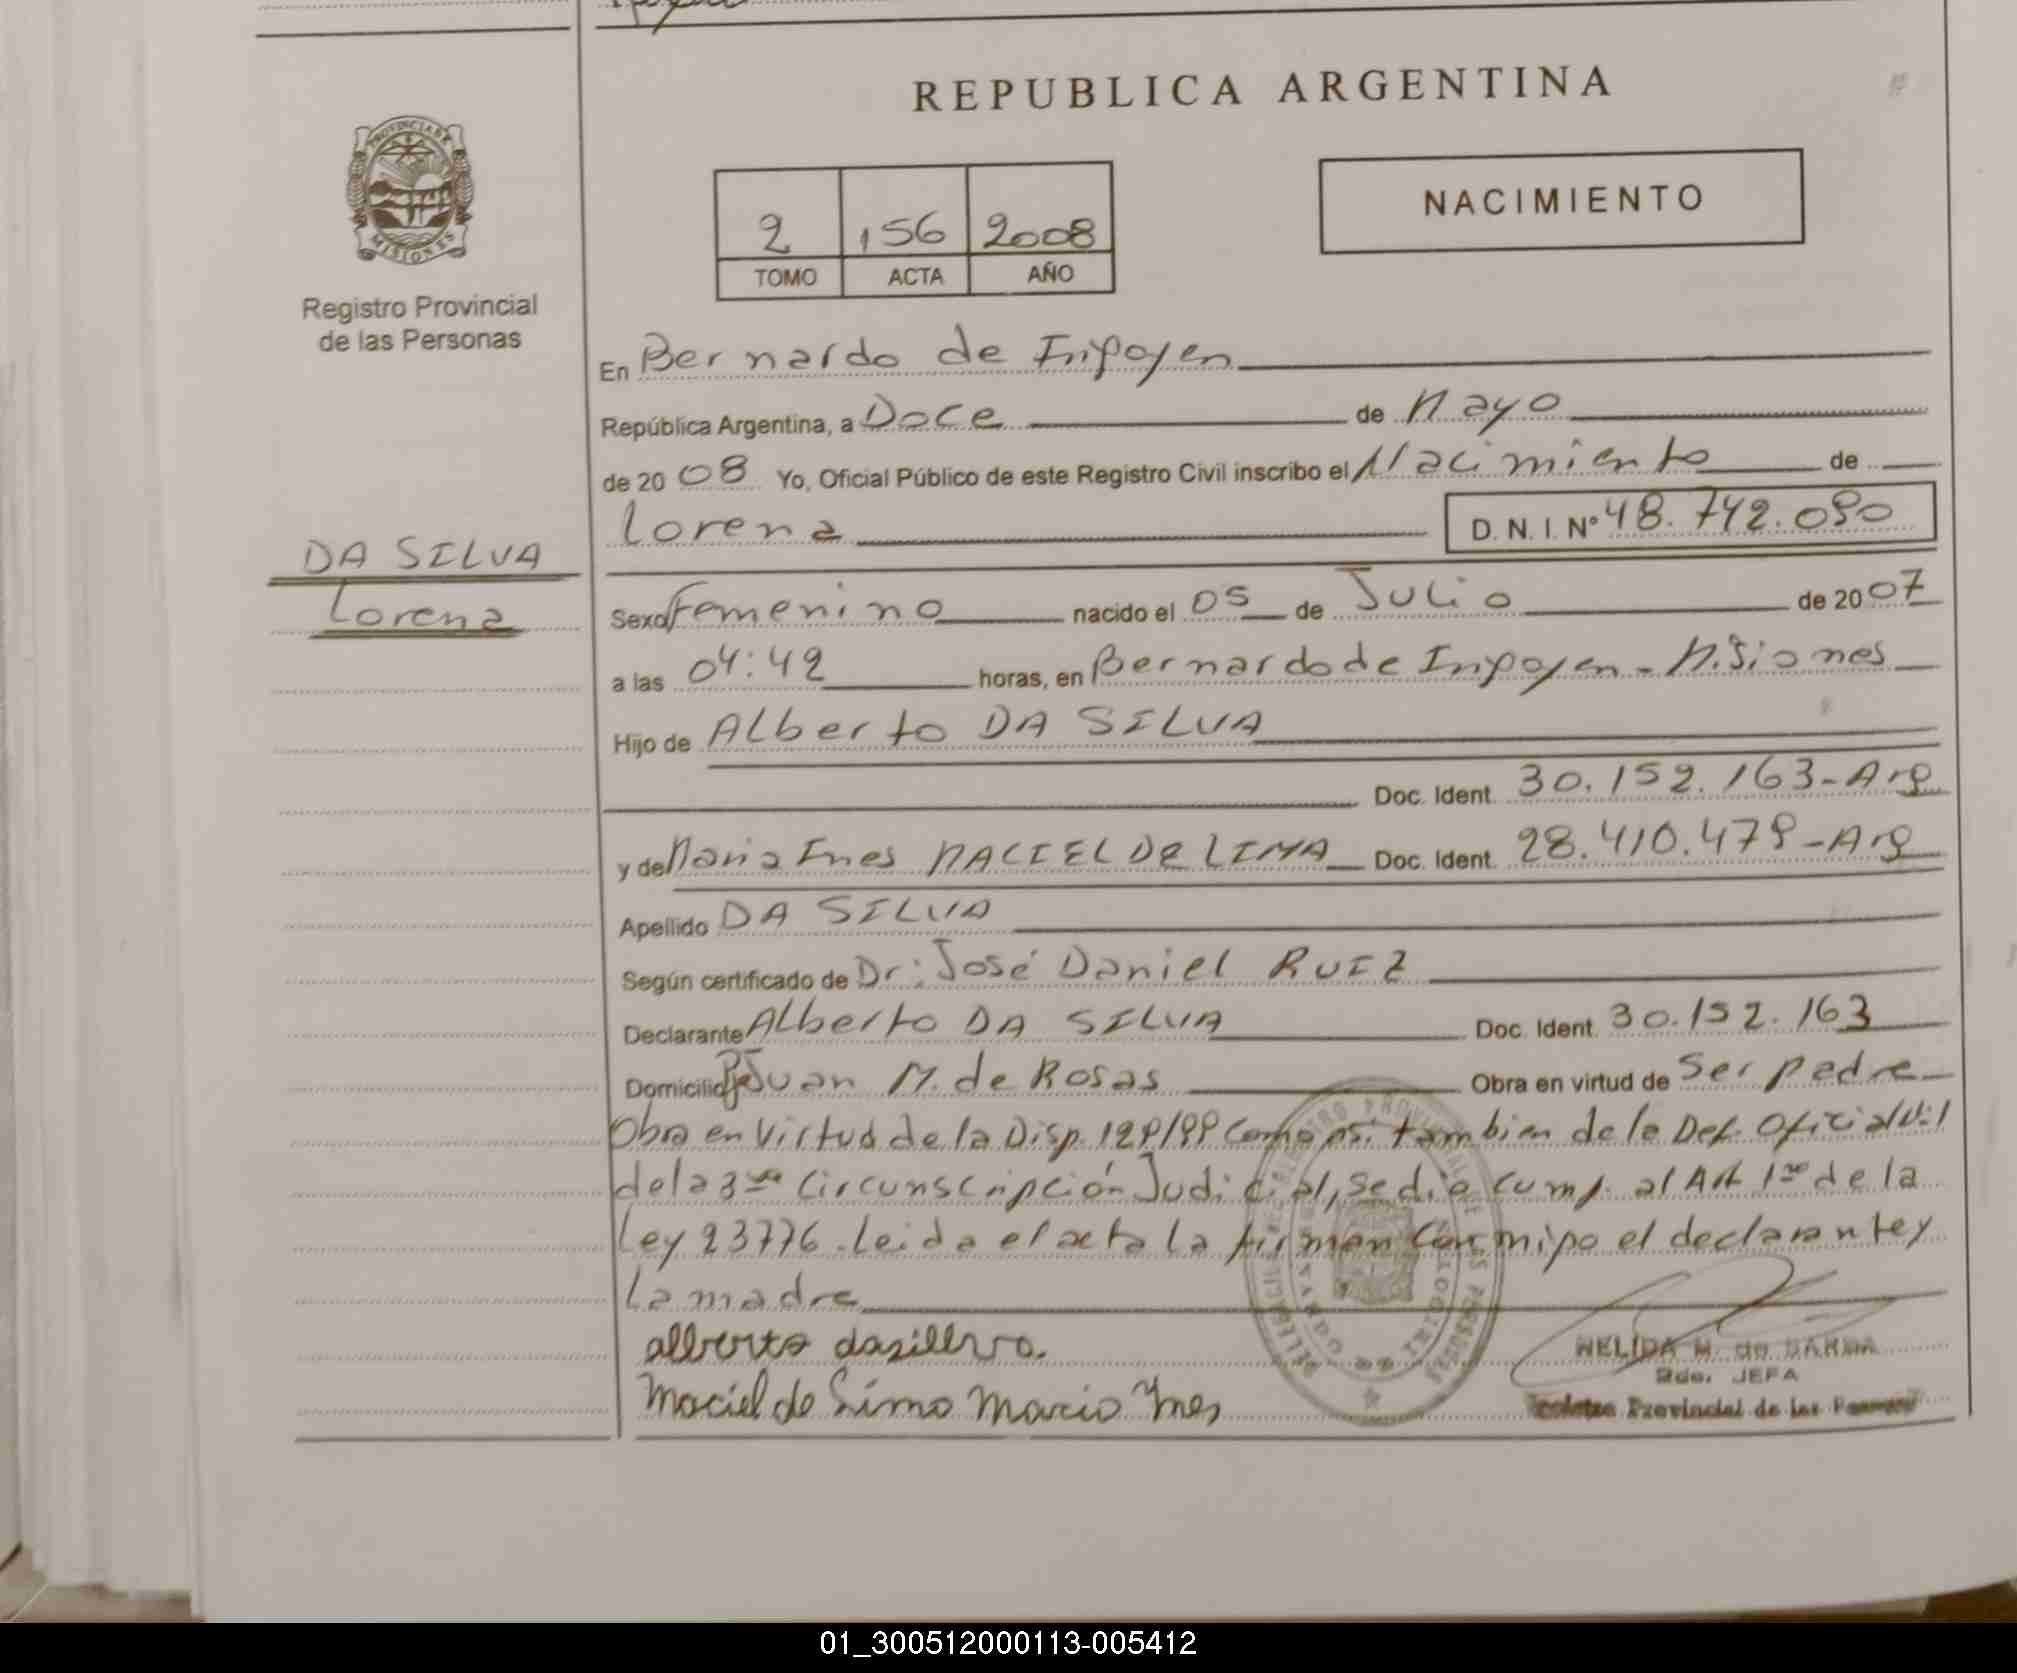 REPUBLICA ARGENTINA
PROVINCIA DE
MISIONES
Registro Provincial
de las Personas
2 156 2008
TOMO ACTA AÑO
NACIMIENTO
En Bernardo de Irigoyen
República Argentina, a Doce de Mayo
de 20 08 Yo, Oficial Público de este Registro Civil inscribo el Nacimiento de
Lorena D. N. I. Nº 48.742.090
DA SILVA
Lorena
Sexo Femenino nacido el 05 de Julio de 20 07
a las 04:42 horas, en Bernardo de Irigoyen - Misiones
Hijo de Alberto DA SILVA
Doc. Ident. 30.152.163-Arg
y de Maria Ines MACIEL De LIMA Doc. Ident. 28.410.479-Arg
Apellido DA SILVA
Según certificado de Dr: José Daniel RUIZ
Declarante Alberto DA SILVA Doc. Ident. 30.152.163
Domicilio Juan M. de Rosas Obra en virtud de Ser padre
Obra en Virtud de la Disp. 129/99 Como asi tambien de la Def. Oficial
de la 3ra Circunscripción Judicial, se dio cump. al Art 1ro de la
Ley 23776. Leida el acta la firman conmigo el declarante y
La madre
alberto dasillva.
Maciel de Lima Maria Ynes
NELIDA M. de
JEFA
Provincial de las
01_300512000113-005412